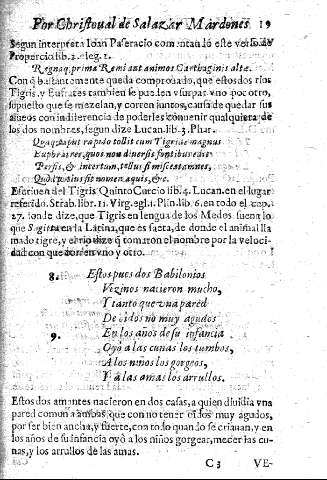 Por Christoual de Salazar Mardones 19
Segun interpreta Ioan Paseracio comentando este verso de
Propercio lib. 2. eleg. 1.
Regnaq; prima Remi aut animos Carthaginis altæ.
Con q̃ bastantemente queda comprouado, que estos dos rios
Tigris, y Eufrates tambien se pueden vsurpar vno por otro,
supuesto que se mezclan, y corren juntos, causa de quedar sus
alueos con indiferencia de poderles conuenir qualquiera de
los dos nombres, segun dize Lucan. lib. 3. Phar.
Quaque caput rapido tollit cum Tigride magnus
Euphrates, quos non diuersis fontibus edit
Persis, & incertum, tellus si misceat amnes,
Quod potius sit nomen aquis, &c.
Escriuen del Tigris Quinto Curcio lib. 4. Lucan. en el lugar
referido. Strab. lib. 11. Virg. egl. 1. Plin. lib. 6. en todo el cap.
27. donde dize, que Tigris en lengua de los Medos suena lo
que Sagitta en la Latina, que es saeta, de donde el animal lla
mado tigre, y el rio dize q̃ tomaron el nombre por la veloci-
dad con que corren vno y otro.
8. Estos pues dos Babilonios
Vezinos nacieron mucho,
Y tanto que vna pared
De oidos no muy agudos
9. En los años de su infancia
Oyò a las cunas los tumbos,
A los niños los gorgeos,
Y a las amas los arrullos.
Estos dos amantes nacieron en dos casas, a quien diuidia vna
pared comun a ambos que con no tener oidos muy agudos,
por ser bien ancha, y fuerte, con todo quando se criauan, y en
los años de su infancia oyò a los niños gorgear, mecer las cu-
nas, y los arrullos de las amas.
C 3 VE-